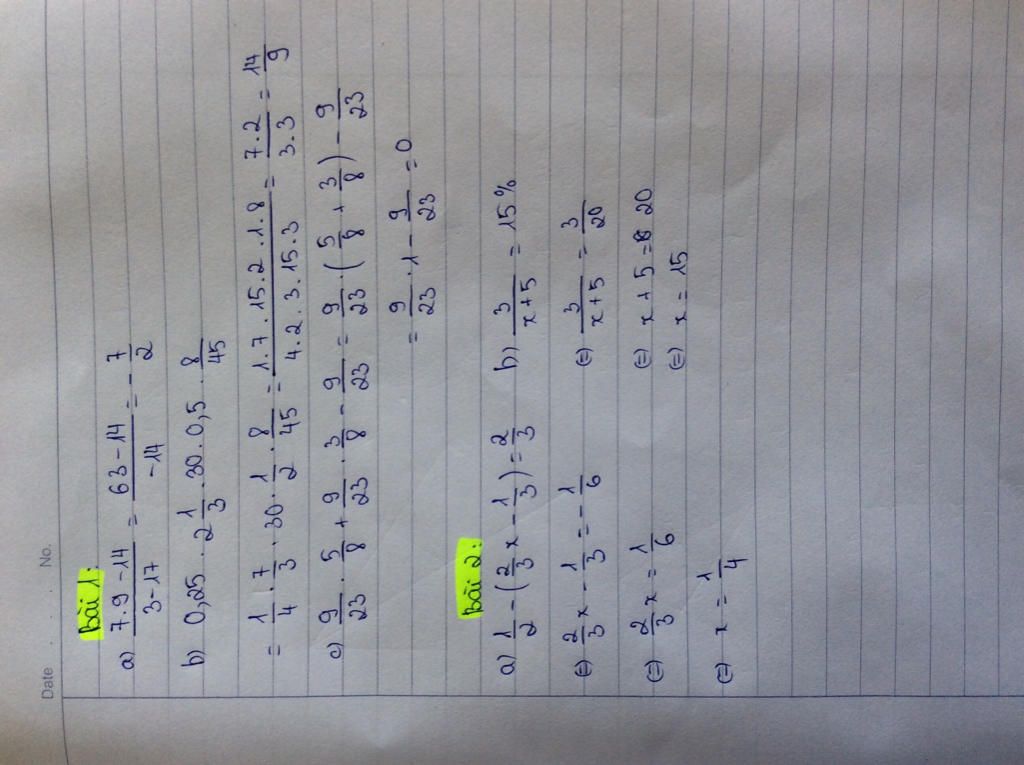 Date . . No.
Bài 1:
a) \frac{7.9 - 14}{3 - 17} = \frac{63 - 14}{-14} = -\frac{7}{2}
b) 0,25 . 2\frac{1}{3} . 30 . 0,5 . \frac{8}{45}
= \frac{1}{4} . \frac{7}{3} . 30 . \frac{1}{2} . \frac{8}{45} = \frac{1.7.15.2.1.8}{4.2.3.15.3} = \frac{7.2}{3.3} = \frac{14}{9}
c) \frac{9}{23} . \frac{5}{8} + \frac{9}{23} . \frac{3}{8} - \frac{9}{23} = \frac{9}{23} . (\frac{5}{8} + \frac{3}{8}) - \frac{9}{23}
= \frac{9}{23} . 1 - \frac{9}{23} = 0
Bài 2:
a) \frac{1}{2} - (\frac{2}{3}x - \frac{1}{3}) = \frac{2}{3}
(=) \frac{2}{3}x - \frac{1}{3} = -\frac{1}{6}
(=) \frac{2}{3}x = \frac{1}{6}
(=) x = \frac{1}{4}
b) \frac{3}{x+5} = 15%
(=) \frac{3}{x+5} = \frac{3}{20}
(=) x + 5 = 20
(=) x = 15